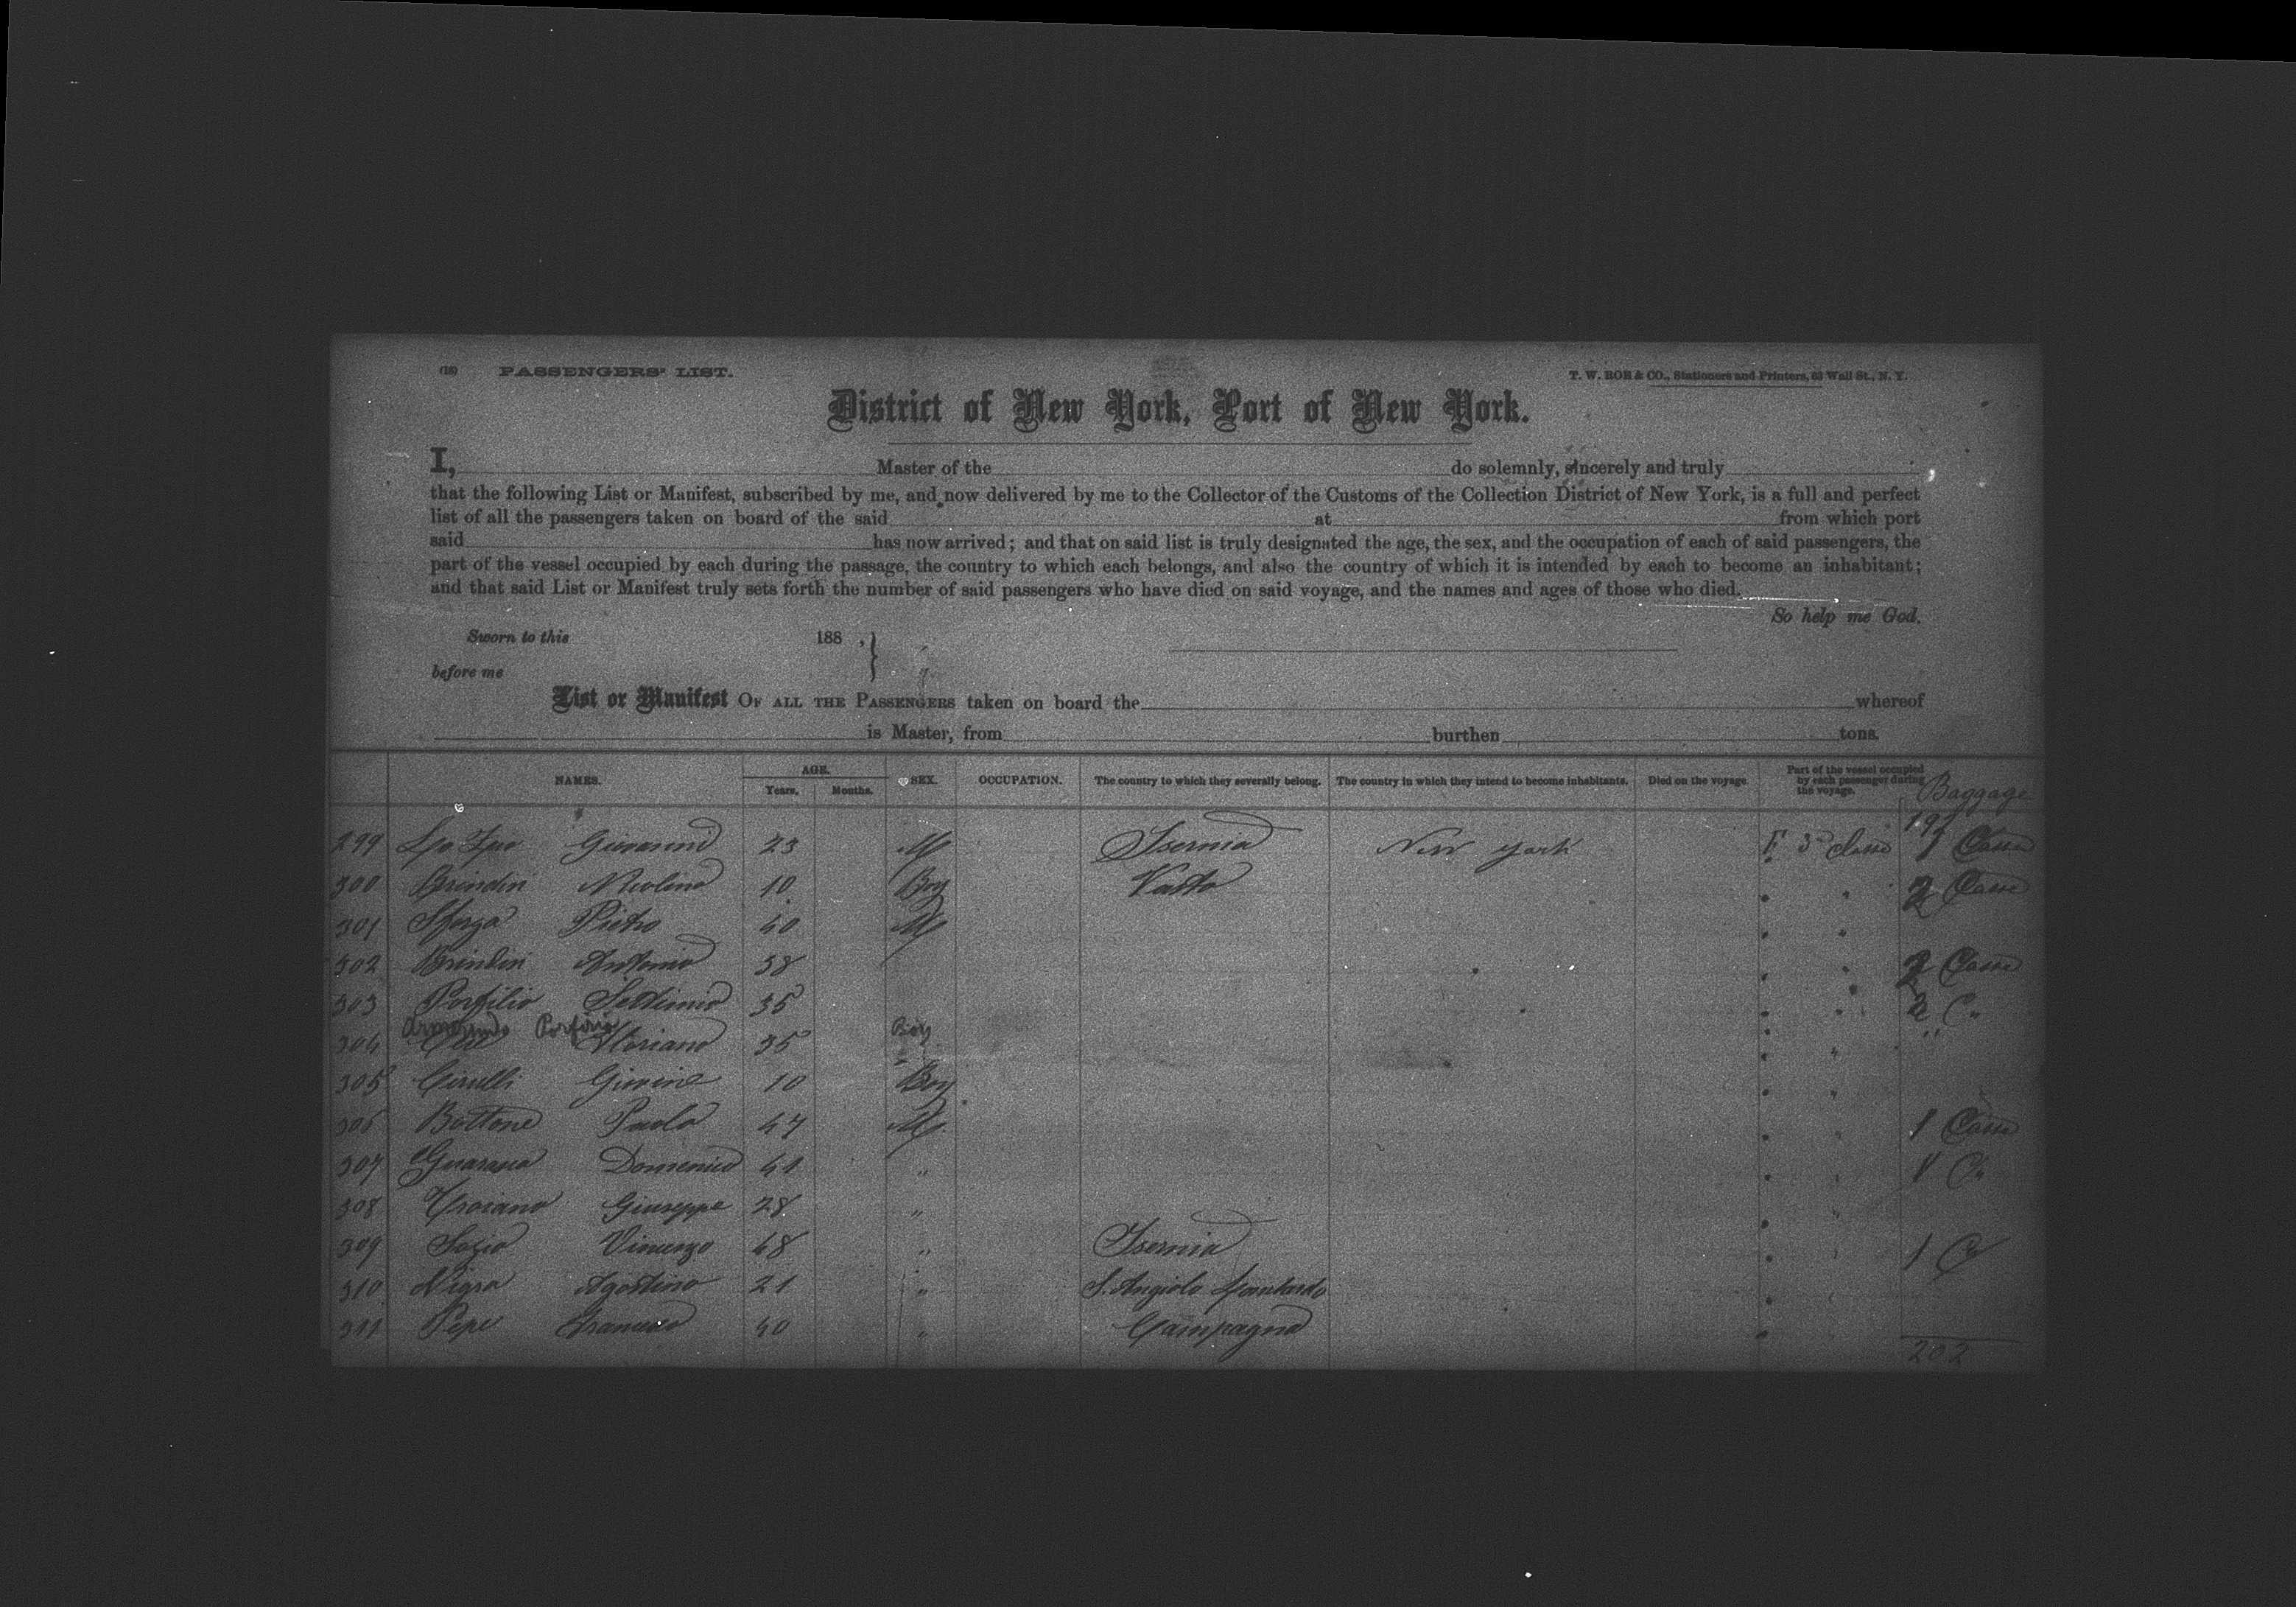 (18) PASSENGERS' LIST. T. W. ROE & CO., Stationers and Printers, 63 Wall St., N. Y.
District of New York, Port of New York.
I, Master of the do solemnly, sincerely and truly
that the following List or Manifest, subscribed by me, and now delivered by me to the Collector of the Customs of the Collection District of New York, is a full and perfect
list of all the passengers taken on board of the said at from which port
said has now arrived; and that on said list is truly designated the age, the sex, and the occupation of each of said passengers, the
part of the vessel occupied by each during the passage, the country to which each belongs, and also the country of which it is intended by each to become an inhabitant;
and that said List or Manifest truly sets forth the number of said passengers who have died on said voyage, and the names and ages of those who died.
So help me God.
Sworn to this 188 , }
before me
List or Manifest OF ALL THE PASSENGERS taken on board the whereof
is Master, from burthen tons.
NAMES. AGE. Years. Months. SEX. OCCUPATION. The country to which they severally belong. The country in which they intend to become inhabitants. Died on the voyage. Part of the vessel occupied by each passenger during the voyage. Baggage
299 Giovanni 23 M Isernia New York F. 3a Classe 1 Cassa
300 Brindisi Nicolino 10 Boy Vasto " " 2 Casse
301 Sforza Pietro 40 M " "
302 Brindisi Antonio 38 " " 2 Casse
303 Porfilio Settimio 35 " " 2 C"
Porfirio Boy " "
304 Floriano 35 " " "
305 Cirulli 10 Boy " "
306 Bottone Paolo 47 M " " 1 Cassa
307 Domenico 41 " " " 1 C"
308 Troiano Giuseppe 28 " " "
309 Sozio Vincenzo 48 " Isernia " " 1 C
310 Nigra Agostino 21 " S. Angiolo Lombardo "
311 Pepe Francesco 40 " Campagna "
202